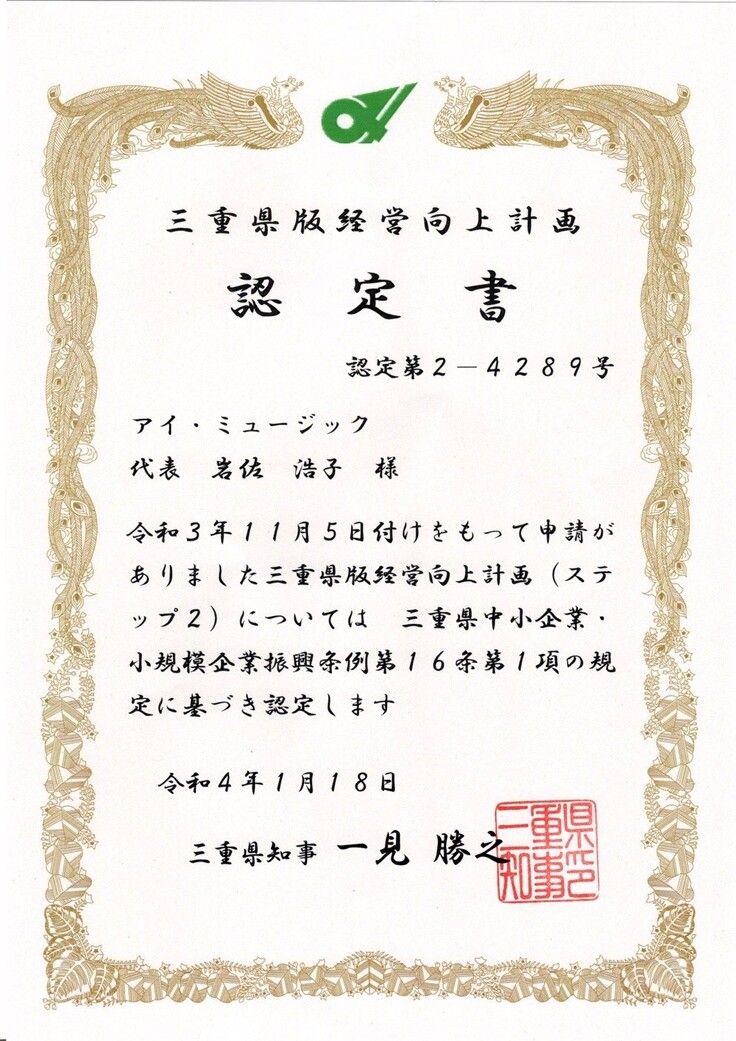 三重県版経営向上計画
認定書
認定第２－４２８９号
アイ・ミュージック
代表　岩佐　浩子　様
令和３年１１月５日付けをもって申請が
ありました三重県版経営向上計画（ステ
ップ２）については　三重県中小企業・
小規模企業振興条例第１６条第１項の規
定に基づき認定します
令和４年１月１８日
三重県知事　一見　勝之
三重県知事印